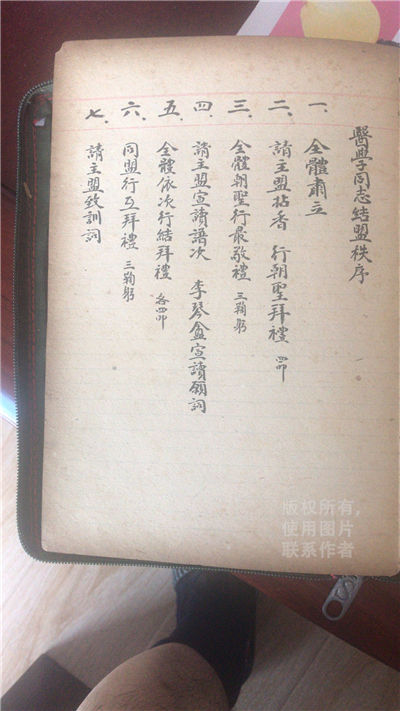 醫學子同志結盟秩序
一、全體肅立
二、請主盟拈香 行朝聖拜禮 四叩
三、全體朝聖行最敬禮 三鞠躬
四、請主盟宣讀譜次 李琴盦宣讀願詞
五、全體依次行結拜禮 各四叩
六、同盟行互拜禮 三鞠躬
七、請主盟致訓詞
版权所有,
使用图片
联系作者